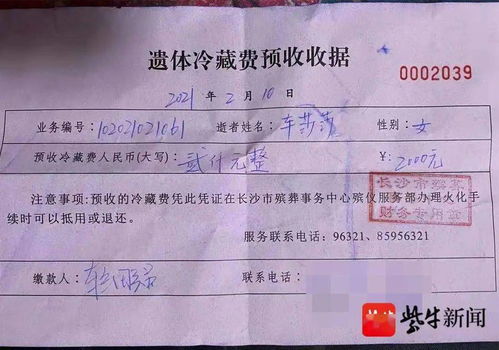 遗体冷藏费预收收据
0002039
2021 年 2 月 10 日
业务编号: 102021021061 逝者姓名: 车莎莎 性别: 女
预收冷藏费人民币(大写): 贰仟元整 ¥: 2000元
注意事项:预收的冷藏费凭此凭证在长沙市殡葬事务中心殡仪服务部办理火化手
续时可以抵用或退还。
长沙市殡葬
财务专用章
服务联系电话:96321、85956321
缴款人: 联系电话:
紫牛新闻